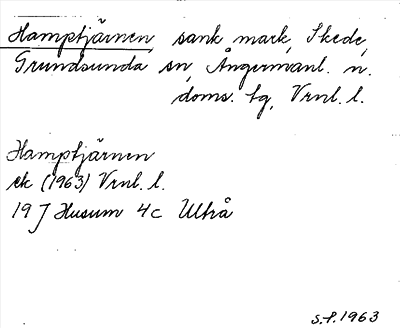 Hamptjärnen, sank mark, Skede,
Grundsunda sn, Ångermanl. n.
doms. tg, Vrnl. l.
Hamptjärnen
ek (1963) Vrnl. l.
19 J Husum 4c Ultrå
S.F. 1963